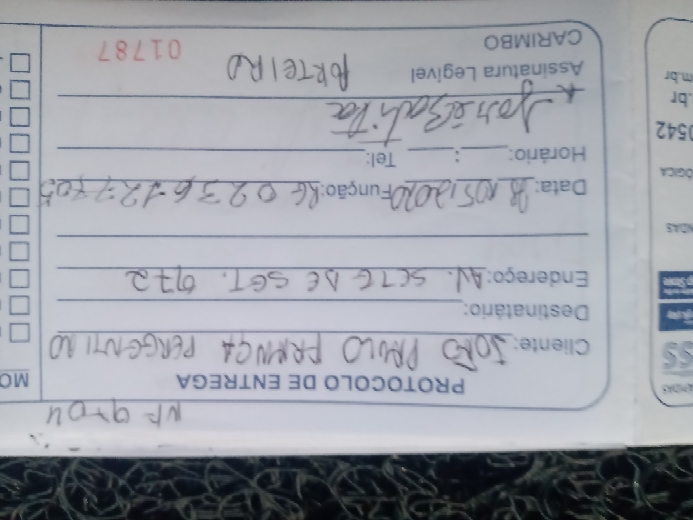 NF 9704
PROTOCOLO DE ENTREGA
Cliente: JOÃO PAULO FRANÇA PERGENTINO
Destinatário:
Endereço: AV. SETE DE SET. 972
Data: 28/05/2020 Função: RG 0236127705
Horário: : Tel:
José Batista
Assinatura Legível PORTEIRO
CARIMBO 01787
MO
SS
NDAS
ÓGICA
0542
.br
m.br